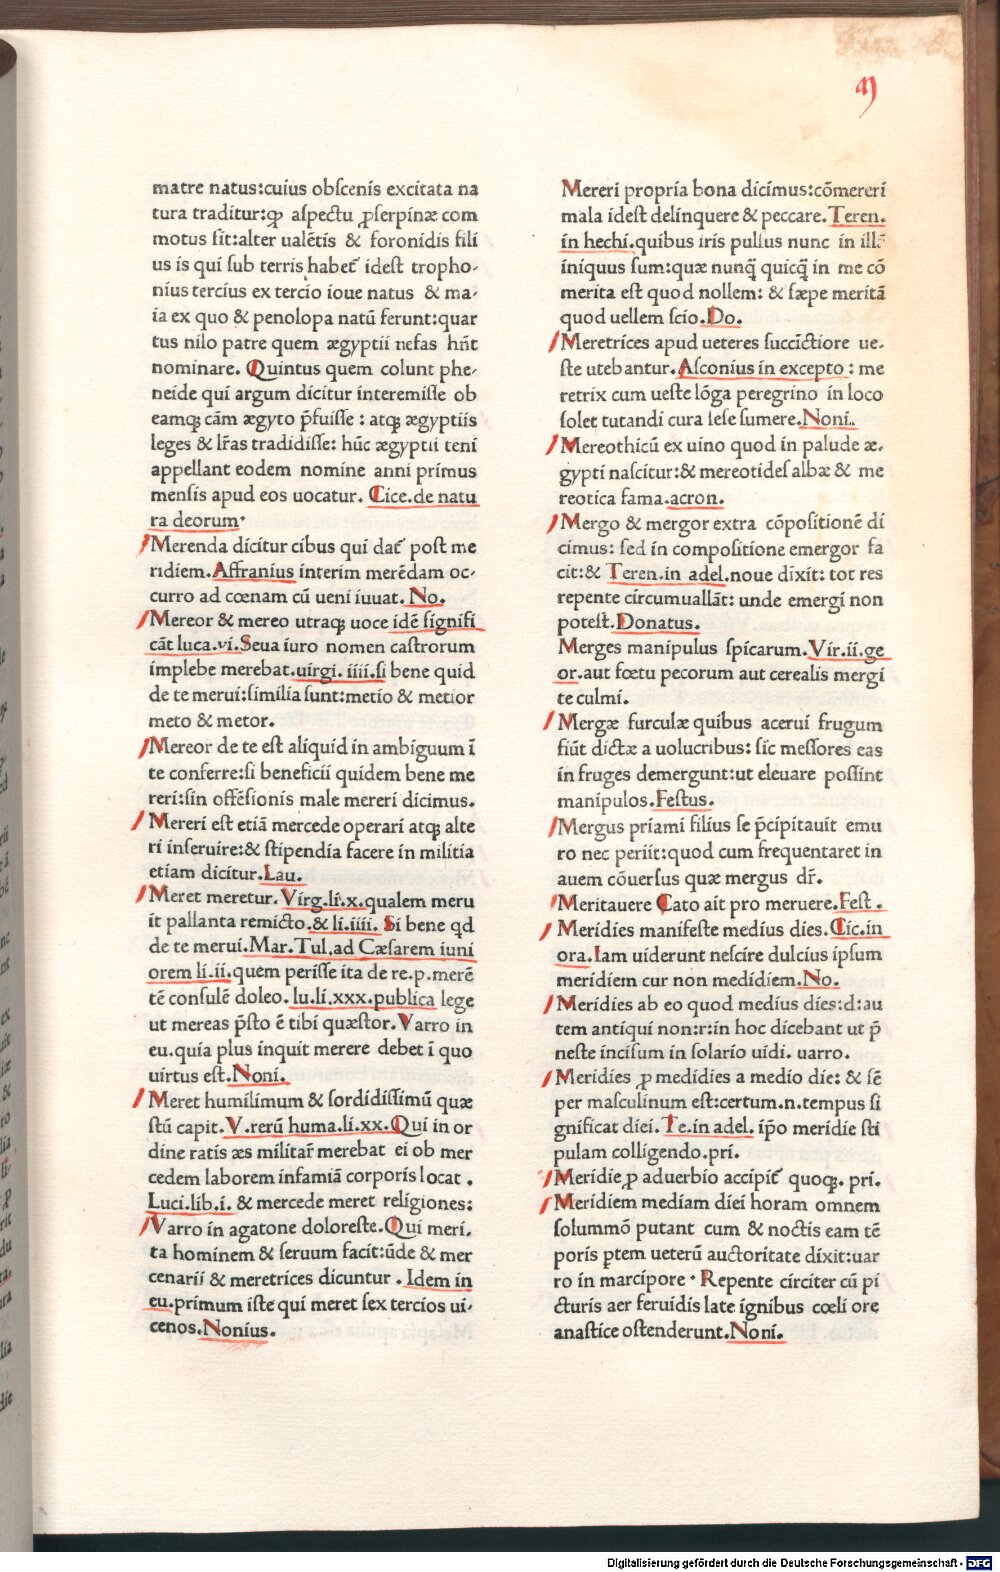 M
matre natus:cuius obſcenis excitata na
tura traditur:qꝫ aſpectu ꝓſerpinæ com
motus ſit:alter ualētis & foronidis fili
us is qui ſub terris habet᷑ ideſt tropho-
nius tercius ex tercio ioue natus & ma-
ia ex quo & penolopa natū ferunt:quar
tus nilo patre quem ægyptii nefas hn̄t
nominare. Quintus quem colunt phe-
neide qui argum dicitur interemiſſe ob
eamqꝫ cām ægyto p̄fuiſſe : atqꝫ ægyptiis
leges & lr̄as tradidiſſe: hūc ægyptii teni
appellant eodem nomine anni primus
menſis apud eos uocatur. Cice.de natu
ra deorum.
Merenda dicitur cibus qui dat᷑ poſt me
ridiem.Affranius interim merēdam oc-
curro ad cœnam cū ueni iuuat. No.
Mereor & mereo utraqꝫ uoce idē ſignifi
cāt luca.vi.Seua iuro nomen caſtrorum
implebe merebat.uirgi. iiii.ſi bene quid
de te merui:ſimilia ſunt:metio & metior
meto & metor.
Mereor de te eſt aliquid in ambiguum ī
te conferre:ſi beneficii quidem bene me
reri:ſin offēſionis male mereri dicimus.
Mereri eſt etiā mercede operari atqꝫ alte
ri inſeruire:& ſtipendia facere in militia
etiam dicitur.Lau.
Meret meretur. Virg.li.x.qualem meru
it pallanta remicto.& li.iiii. Si bene qd
de te merui.Mar.Tul.ad Cæſarem iuni
orem li.ii.quem periſſe ita de re.p.merē
tē conſulē doleo.lu.li.xxx.publica lege
ut mereas p̄ſto ē tibi quæſtor.Varro in
eu.quia plus inquit merere debet ī quo
uirtus eſt.Noni.
Meret humilimum & ſordidiſſimū quæ
ſtū capit.V.rerū huma.li.xx.Qui in or
dine ratis æs militar̄ merebat ei ob mer
cedem laborem infamiā corporis locat.
Luci.lib.i. & mercede meret religiones:
Varro in agatone doloreſte.Qui meri.
ta hominem & ſeruum facit:ūde & mer
cenarii & meretrices dicuntur . Idem in
eu.primum iſte qui meret ſex tercios ui-
cenos.Nonius.
Mereri propria bona dicimus:cōmereri
mala ideſt delinquere & peccare.Teren.
in hechi.quibus iris pulſus nunc in illā
iniquus ſum:quæ nunq̄ quicq̄ in me cō
merita eſt quod nollem: & ſæpe meritā
quod uellem ſcio.Do.
Meretrices apud ueteres ſuccīctiore ue-
ſte utebantur. Aſconius in excepto : me
retrix cum ueſte lōga peregrino in loco
ſolet tutandi cura ſeſe ſumere.Noni.
Mereothicū ex uino quod in palude æ-
gypti naſcitur:& mereotideſ albæ & me
reotica fama.acron.
Mergo & mergor extra cōpoſitionē di
cimus: ſed in compoſitione emergor fa
cit:& Teren.in adel.noue dīxit: tot res
repente circumuallāt: unde emergi non
poteſt.Donatus.
Merges manipulus ſpicarum.Vir.ii.ge
or.aut fœtu pecorum aut cerealis mergi
te culmi.
Mergæ furculæ quibus acerui frugum
fiūt dictæ a uolucribus: ſic meſſores eas
in fruges demergunt:ut eleuare poſſint
manipulos.Feſtus.
Mergus priami filius ſe p̄cipitauit emu
ro nec periit:quod cum frequentaret in
auem cōuerſus quæ mergus dr̄.
Meritauere Cato ait pro meruere.Feſt .
Meridies manifeſte medius dies.Cic.in
ora.Iam uiderunt neſcire dulcius ipſum
meridiem cur non medidiem.No.
Meridies ab eo quod medius dies:d:au
tem antiqui non:r:in hoc dicebant ut p̄
neſte inciſum in ſolario uidi. uarro.
Meridies ꝓ medidies a medio die: & ſē
per maſculinum eſt:certum.n.tempus ſi
gnificat diei. Te.in adel. ip̄o meridie ſti
pulam colligendo.pri.
Meridie ꝓ aduerbio accipit᷑ quoqꝫ. pri.
Meridiem mediam diei horam omnem
ſolummō putant cum & noctis eam tē
poris ꝑtem ueterū auctoritate dixit:uar
ro in marcipore . Repente circiter cū pi
cturis aer feruidis late ignibus cœli ore
anaſtice oſtenderunt.Noni.
Digitalisierung gefördert durch die Deutsche Forschungsgemeinschaft - DFG